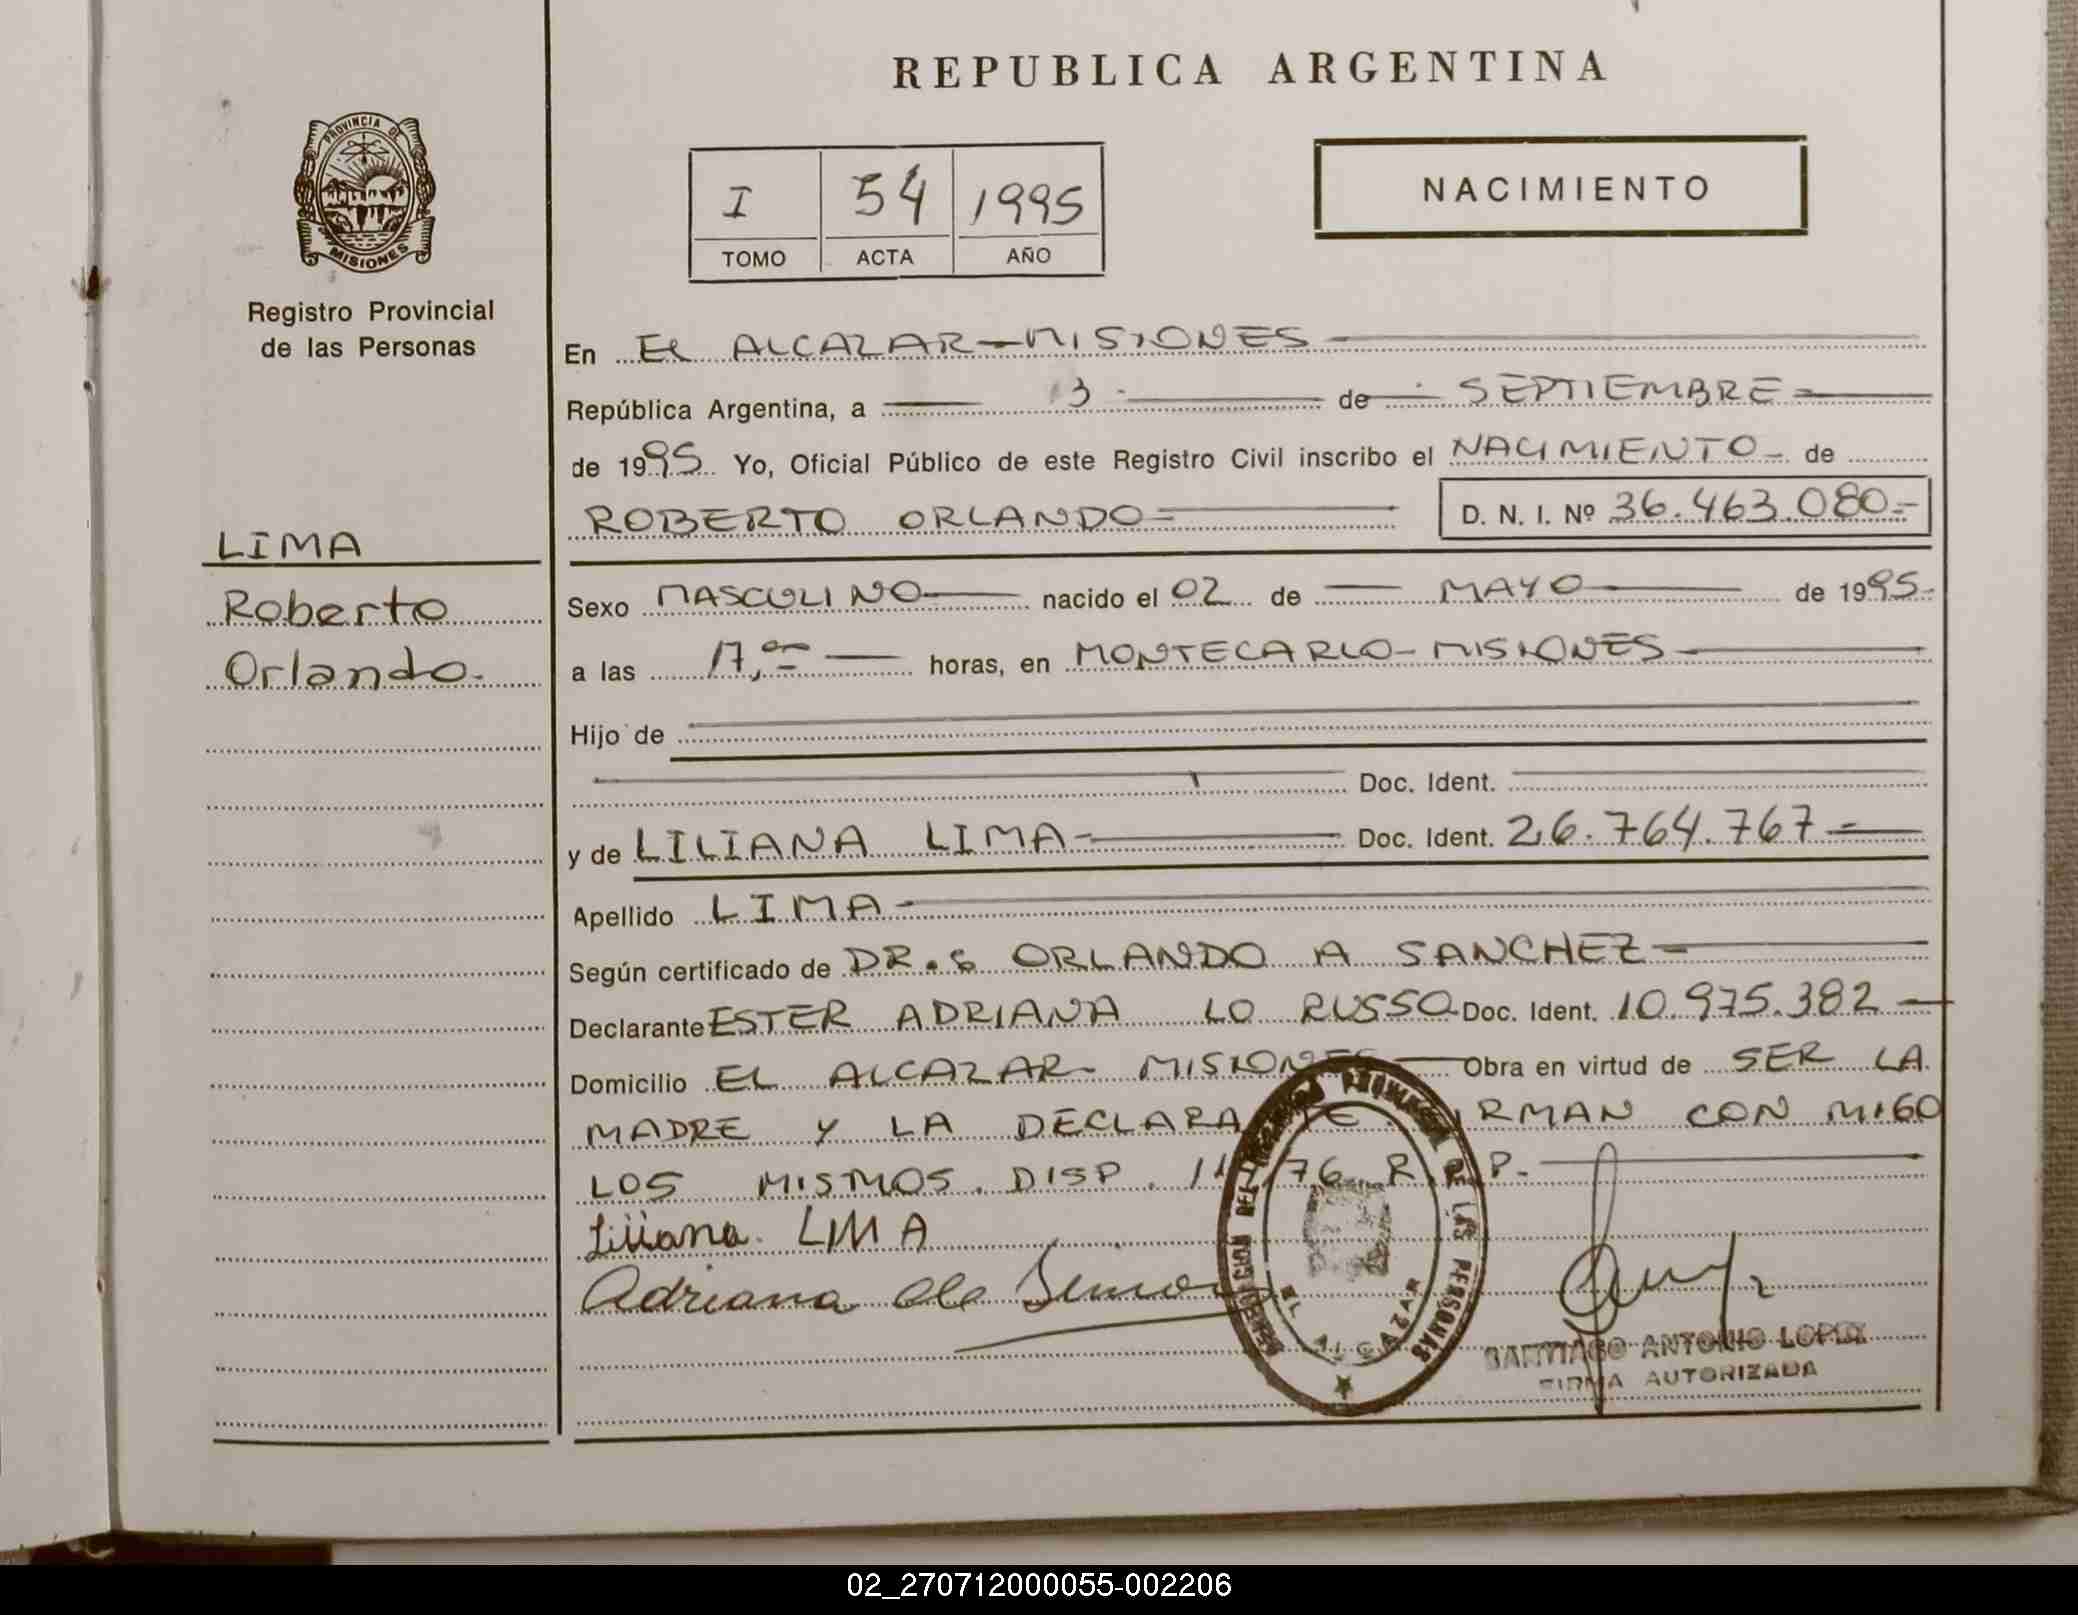 REPUBLICA ARGENTINA
PROVINCIA DE
MISIONES
Registro Provincial
de las Personas
I 54 1995
TOMO ACTA AÑO
NACIMIENTO
En El ALCAZAR - MISIONES
República Argentina, a 3 de SEPTIEMBRE
de 1995 Yo, Oficial Público de este Registro Civil inscribo el NACIMIENTO de
ROBERTO ORLANDO D. N. I. Nº 36.463.080.-
LIMA
Roberto
Orlando.
Sexo MASCULINO nacido el 02 de MAYO de 1995
a las 17,00 horas, en MONTECARLO - MISIONES
Hijo de
Doc. Ident.
y de LILIANA LIMA Doc. Ident. 26.764.767
Apellido LIMA
Según certificado de DR. ORLANDO A SANCHEZ
Declarante ESTER ADRIANA LO RUSSO Doc. Ident. 10.975.382
Domicilio EL ALCAZAR - MISIONES Obra en virtud de SER LA
MADRE Y LA DECLARANTE FIRMAN CON MIGO
LOS MISMOS. DISP. 76 R. P.
Liliana LIMA
Adriana de
DELEGACION DEL REGISTRO PROVINCIAL DE LAS PERSONAS
EL ALCAZAR
SANTIAGO ANTONIO LOPEZ
FIRMA AUTORIZADA
02_270712000055-002206